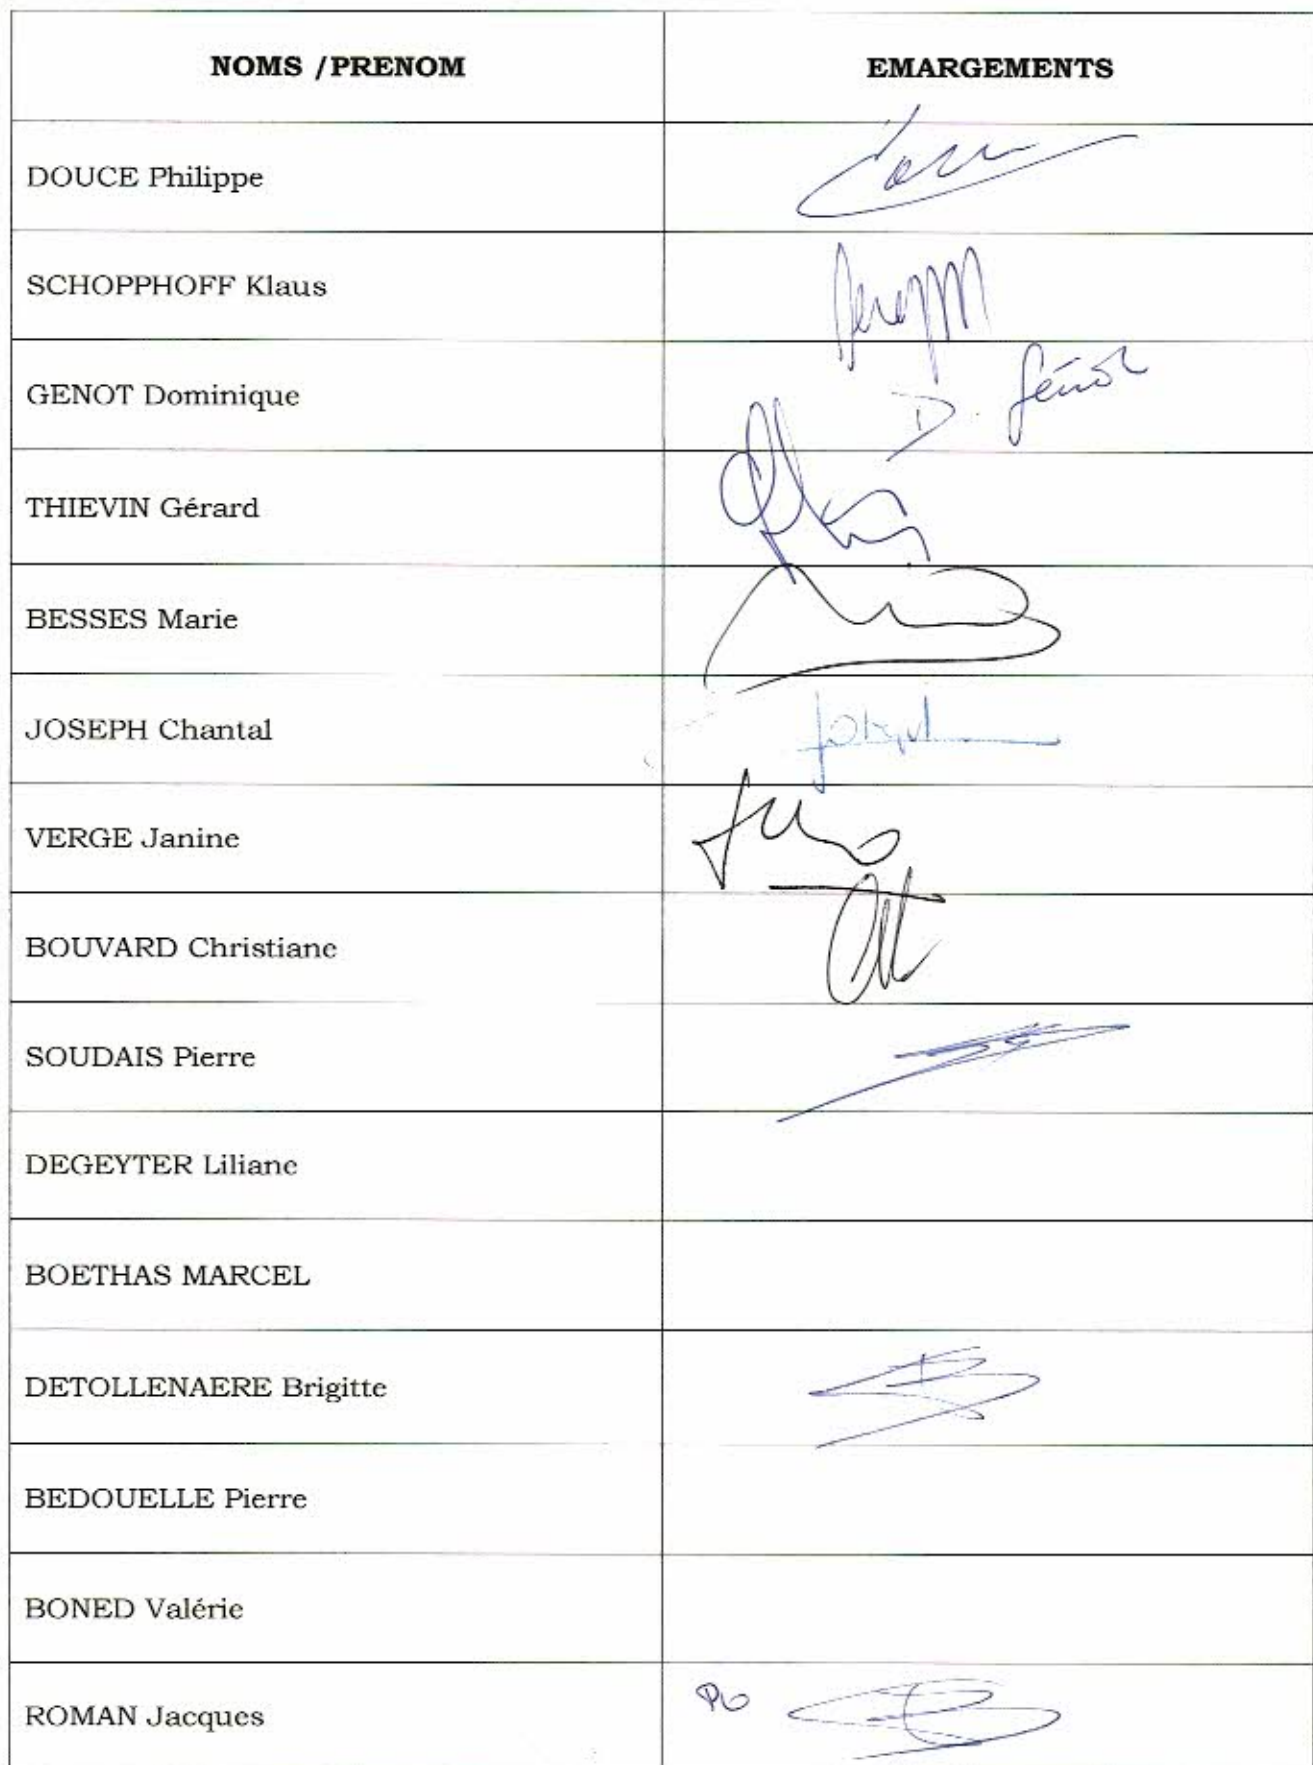 NOMS /PRENOM EMARGEMENTS
DOUCE Philippe
SCHOPPHOFF Klaus
GENOT Dominique D. Génot
THIEVIN Gérard
BESSES Marie
JOSEPH Chantal Joseph
VERGE Janine
BOUVARD Christiane
SOUDAIS Pierre
DEGEYTER Liliane
BOETHAS MARCEL
DETOLLENAERE Brigitte
BEDOUELLE Pierre
BONED Valérie
ROMAN Jacques Po